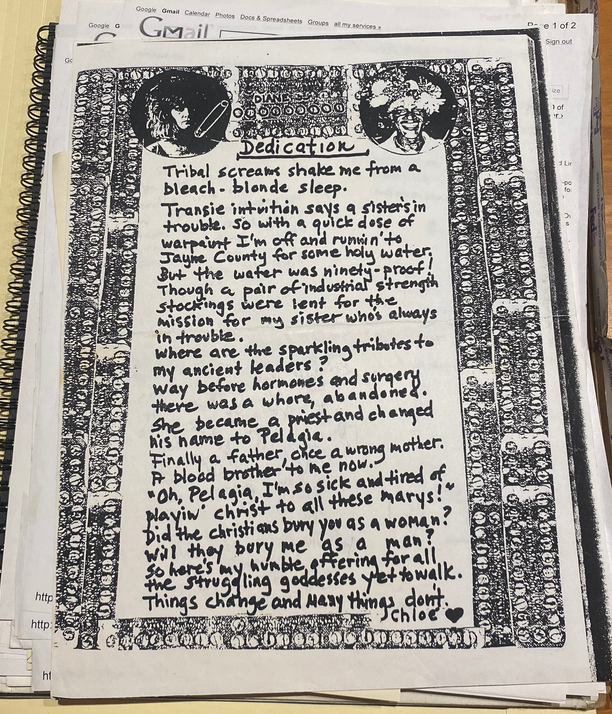 Google Gmail Calendar Photos Docs & Spreadsheets Groups all my services »
Google G
Page 1 of 2
GMail
Sign out
DIANE
Dedication
Tribal screams shake me from a
bleach-blonde sleep.
Transie intuition says a sister's in
trouble. So with a quick dose of
warpaint I'm off and runnin' to
Jayne County for some holy water.
But the water was ninety-proof!
Though a pair of industrial strength
stockings were lent for the
mission for my sister who's always
in trouble.
Where are the sparkling tributes to
my ancient leaders?
Way before hormones and surgery
there was a whore, abandoned.
She became a priest and changed
his name to Pelagia.
Finally a father, once a wrong mother.
A blood brother to me now.
"Oh, Pelagia, I'm so sick and tired of
playin' christ to all these marys!"
Did the christians bury you as a woman?
Will they bury me as a man?
So here's my humble offering for all
the struggling goddesses yet to walk.
Things change and Many things don't.
Chloe ♥
http
http:
ht